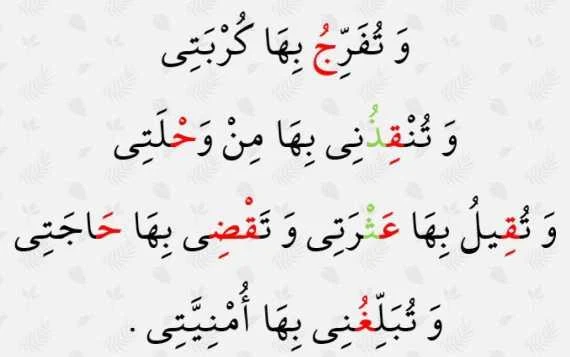 وَ تُفَرِّجُ بِهَا كُرْبَتِی
وَ تُنْقِذُنِی بِهَا مِنْ وَحْلَتِی
وَ تُقِیلُ بِهَا عَثْرَتِی وَ تَقْضِی بِهَا حَاجَتِی
وَ تُبَلِّغُنِی بِهَا أُمْنِیَّتِی .